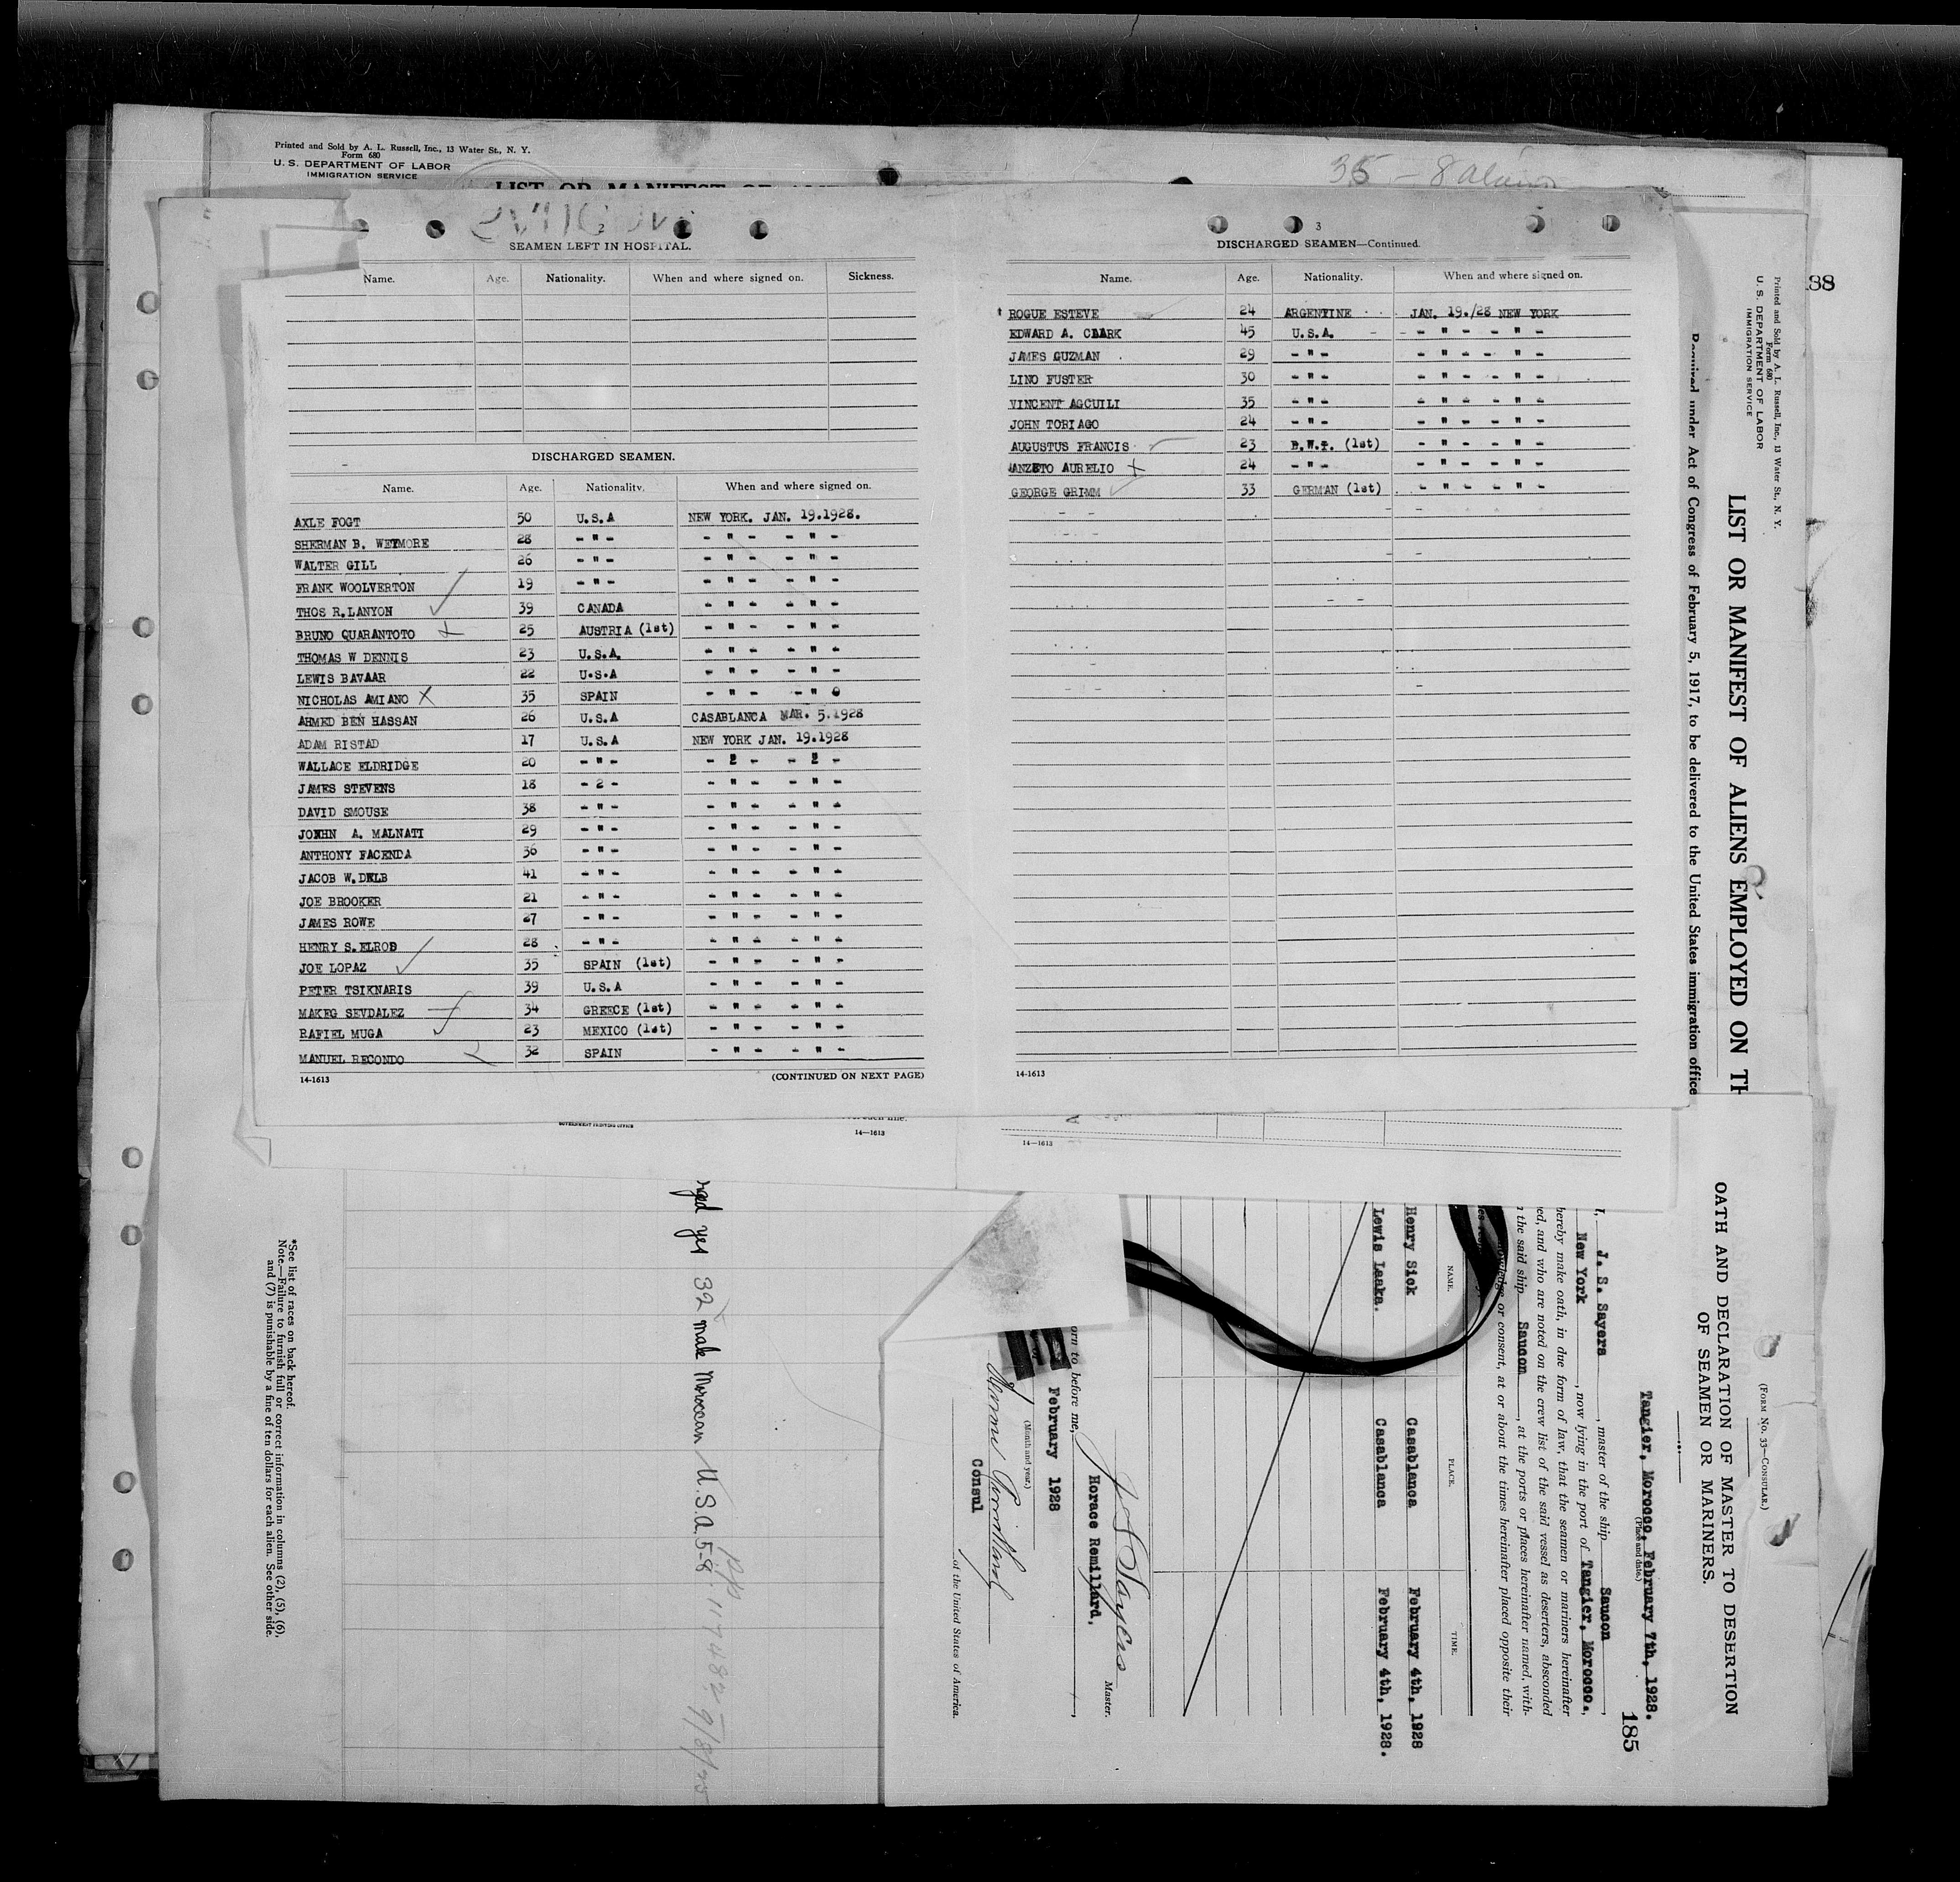 Printed and Sold by A. L. Russell, Inc., 13 Water St., N. Y.
Form 680
U. S. DEPARTMENT OF LABOR
IMMIGRATION SERVICE
35 - 8
2
SEAMEN LEFT IN HOSPITAL.
Name. Age. Nationality. When and where signed on. Sickness.
DISCHARGED SEAMEN.
Name. Age. Nationality. When and where signed on.
AXLE FOGT 50 U.S.A NEW YORK. JAN. 19.1928.
SHERMAN B. WETMORE 28 - " - - " - - " -
WALTER GILL 26 - " - - " - - " -
FRANK WOOLVERTON 19 - " - - " - - " -
THOS R.LANYON 39 CANADA - " - - " -
BRUNO QUARANTOTO 25 AUSTRIA (1st) - " - - " -
THOMAS W DENNIS 23 U.S.A. - " - - " -
LEWIS BAVAAR 22 U.S.A - " - - " -
NICHOLAS AMIANO X 35 SPAIN - " - - "
AHMED BEN HASSAN 26 U.S.A CASABLANCA MAR. 5.1928
ADAM RISTAD 17 U.S.A NEW YORK JAN. 19.1928
WALLACE ELDRIDGE 20 - " - - 2 - - 2 -
JAMES STEVENS 18 - 2 - - " - - " -
DAVID SMOUSE 38 - " - - " - - " -
JOHHN A. MALNATI 29 - " - - " - - " -
ANTHONY FACENDA 36 - " - - " - - " -
JACOB W.DELB 41 - " - - " - - " -
JOE BROOKER 21 - " - - " - - " -
JAMES ROWE 27 - " - - " - - " -
HENRY S.ELROD 28 - " - - " - - " -
JOE LOPAZ 35 SPAIN (1st) - " - - " -
PETER TSIKNARIS 39 U.S.A - " - - " -
MAKEG SEVDALEZ 34 GREECE (1st) - " - - " -
RAFIEL MUGA 23 MEXICO (1st) - " - - " -
MANUEL RECONDO 32 SPAIN - " - - " -
14-1613 (CONTINUED ON NEXT PAGE)
3
DISCHARGED SEAMEN—Continued.
Name. Age. Nationality. When and where signed on.
ROGUE ESTEVE 24 ARGENTINE JAN. 19./28 NEW YORK
EDWARD A. CLARK 45 U.S.A. - " - - " -
JAMES GUZMAN 29 - " - - " - - " -
LINO FUSTER 30 - " - - " - - " -
VINCENT AGCUILI 35 - " - - " - - " -
JOHN TORIAGO 24 - " - - " - - " -
AUGUSTUS FRANCIS 23 B.W.I. (1st) - " - - " -
ANZETO AURELIO 24 - " - - " - - " -
GEORGE GRIMM 33 GERMAN (1st) - " - - " -
14-1613
GOVERNMENT PRINTING OFFICE
14—1613
14—1613
Printed and Sold by A. L. Russell, Inc., 13 Water St., N. Y.
Form 680
U. S. DEPARTMENT OF LABOR
IMMIGRATION SERVICE
LIST OR MANIFEST OF ALIENS EMPLOYED ON TH
Required under Act of Congress of February 5, 1917, to be delivered to the United States immigration office
(FORM NO. 33—CONSULAR.)
OATH AND DECLARATION OF MASTER TO DESERTION
OF SEAMEN OR MARINERS.
185
Tangier, Morocco, February 7th, 1928.
(Place and date.)
I, J. S. Sayers, master of the ship Saucon,
New York, now lying in the port of Tangier, Morocco.,
hereby make oath, in due form of law, that the seamen or mariners hereinafter
ed, and who are noted on the crew list of the said vessel as deserters, absconded
the said ship Saucon, at the ports or places hereinafter named, with-
knowledge or consent, at or about the times hereinafter placed opposite their
NAME. PLACE. TIME.
Henry Sick Casablanca February 4th, 1928
Lewis Leaka. Casablanca February 4th, 1928.
J S Sayers
Master.
Horace Remillard,
orn to before me,
February 1928
(Month and year.)
Consul
of the United States of America.
yes 32 male Moroccan U.S.A. 5-8
*See list of races on back hereof.
Note.—Failure to furnish full or correct information in columns (2), (5), (6),
and (7) is punishable by a fine of ten dollars for each alien. See other side.